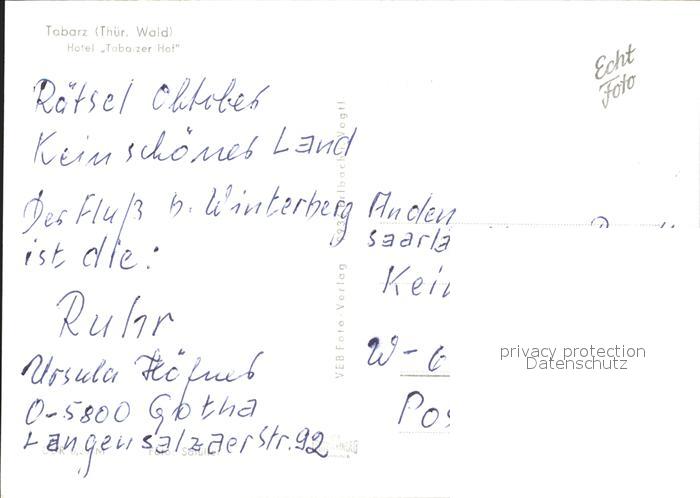 Tabarz (Thür. Wald)
Hotel „Tabarzer Hof"
Echt
Foto
Rätsel Oktober
Kein schöner Land
Der Fluß b. Winterberg
ist die:
Ruhr
Ursula Höfner
O-5800 Gotha
Langensalzaer Str. 92
VEB Foto-Verlag
An den
Saarlä
Kein
W-6
Pos
privacy protection
Datenschutz